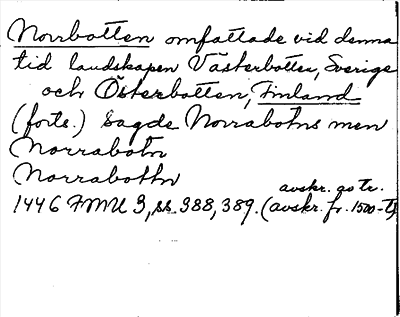 Norrbotten omfattade vid denna
tid landskapen Västerbotten, Sverige
och Österbotten, Finland
(forts.) Sagde Norrabotns men
Norrabotn
Norrabottn
avskr. as tr.
1446 FMU 3, ss. 388, 389. (avskr. fr. 1500-t)